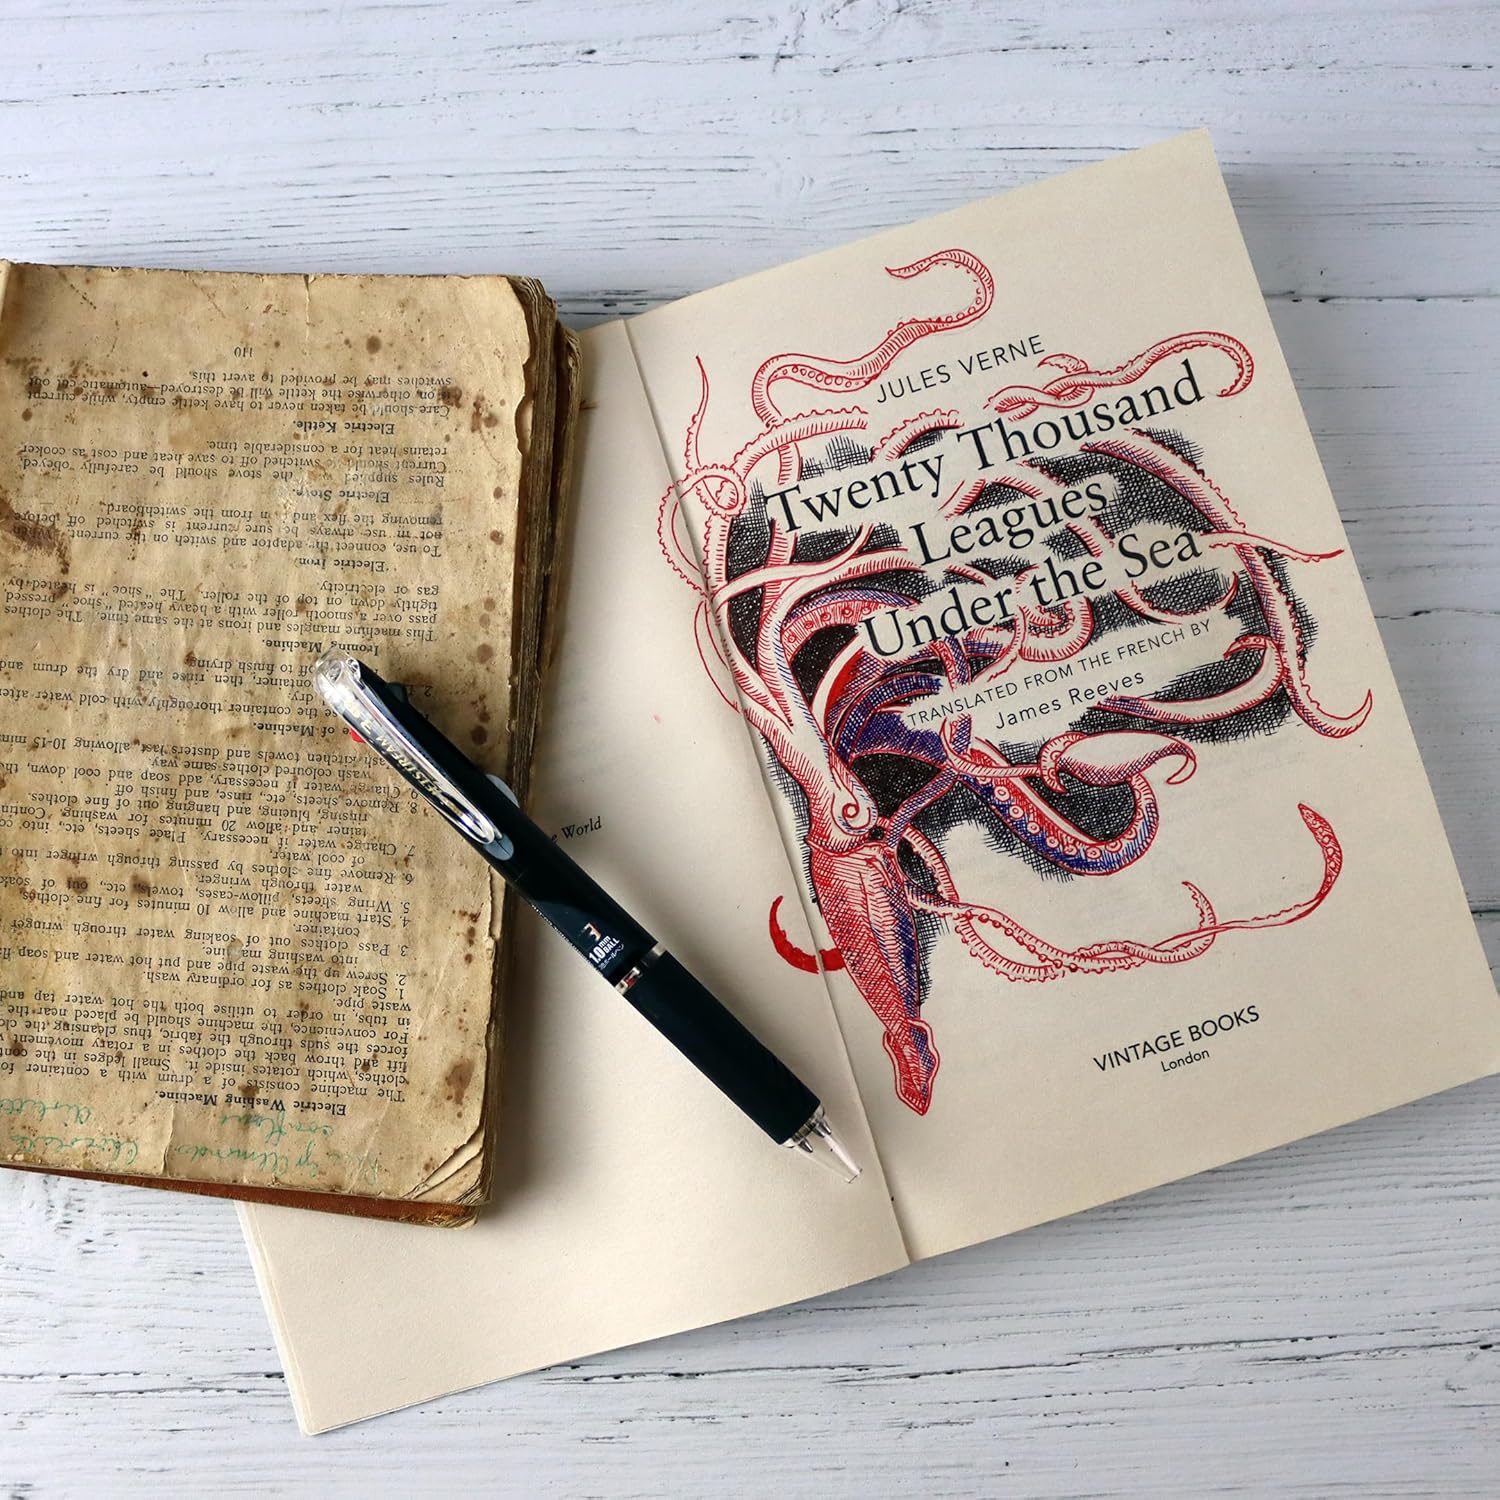 Electric Washing Machine.
The machine consists of a drum with a container fo
clothes, which rotates inside it. Small ledges in the cont
lift and throw back the clothes in a rotary movement w
forces the suds through the fabric, thus cleansing the clo
For convenience, the machine should be placed near the
in tubs, in order to utilise both the hot water tap and
waste pipe.
1. Soak clothes as for ordinary wash.
2. Screw up the waste pipe and put hot water and soap fl
into washing ma ine.
3. Pass clothes out of soaking water through wringer
container.
4. Start machine and allow 10 minutes for fine clothes
5. Wring sheets, pillow-cases, towels, etc., out of soak
water through wringer.
6. Remove fine clothes by passing through wringer into
of cool water.
7. Change water if necessary. Place sheets, etc., into co
tainer and allow 20 minutes for washing. Contin
rinsing, blueing and hanging out of fine clothes.
8. Remove sheets, etc., rinse, and finish off.
9. Change water if necessary, add soap and cool down, the
wash coloured clothes same way.
ash kitchen towels and dusters last, allowing 10-15 min
e of Machine.
se the container thoroughly with cold water after
dry.
2. container, then rinse and dry the drum and
off to finish drying.
Ironing Machine.
This machine mangles and irons at the same time. The clothes
pass over a smooth roller with a heavy heated "shoe" pressed
tightly down on top of the roller. The "shoe" is heated by
gas or electricity.
Electric Iron.
To use, connect the adaptor and switch on the current. When
not in use always be sure current is switched off before
removing the flex and in from the switchboard.
Electric Stove.
Rules supplied the stove should be carefully obeyed.
Current should switched off to save heat and cost as cooker
retains heat for a considerable time.
Electric Kettle.
Care should be taken never to have kettle empty, while current
is on, otherwise the kettle will be destroyed—automatic cut out
switches may be provided to avert this.
110
3
1.0mm
BALL
World
JULES VERNE
Twenty Thousand
Leagues
Under the Sea
TRANSLATED FROM THE FRENCH BY
James Reeves
VINTAGE BOOKS
London